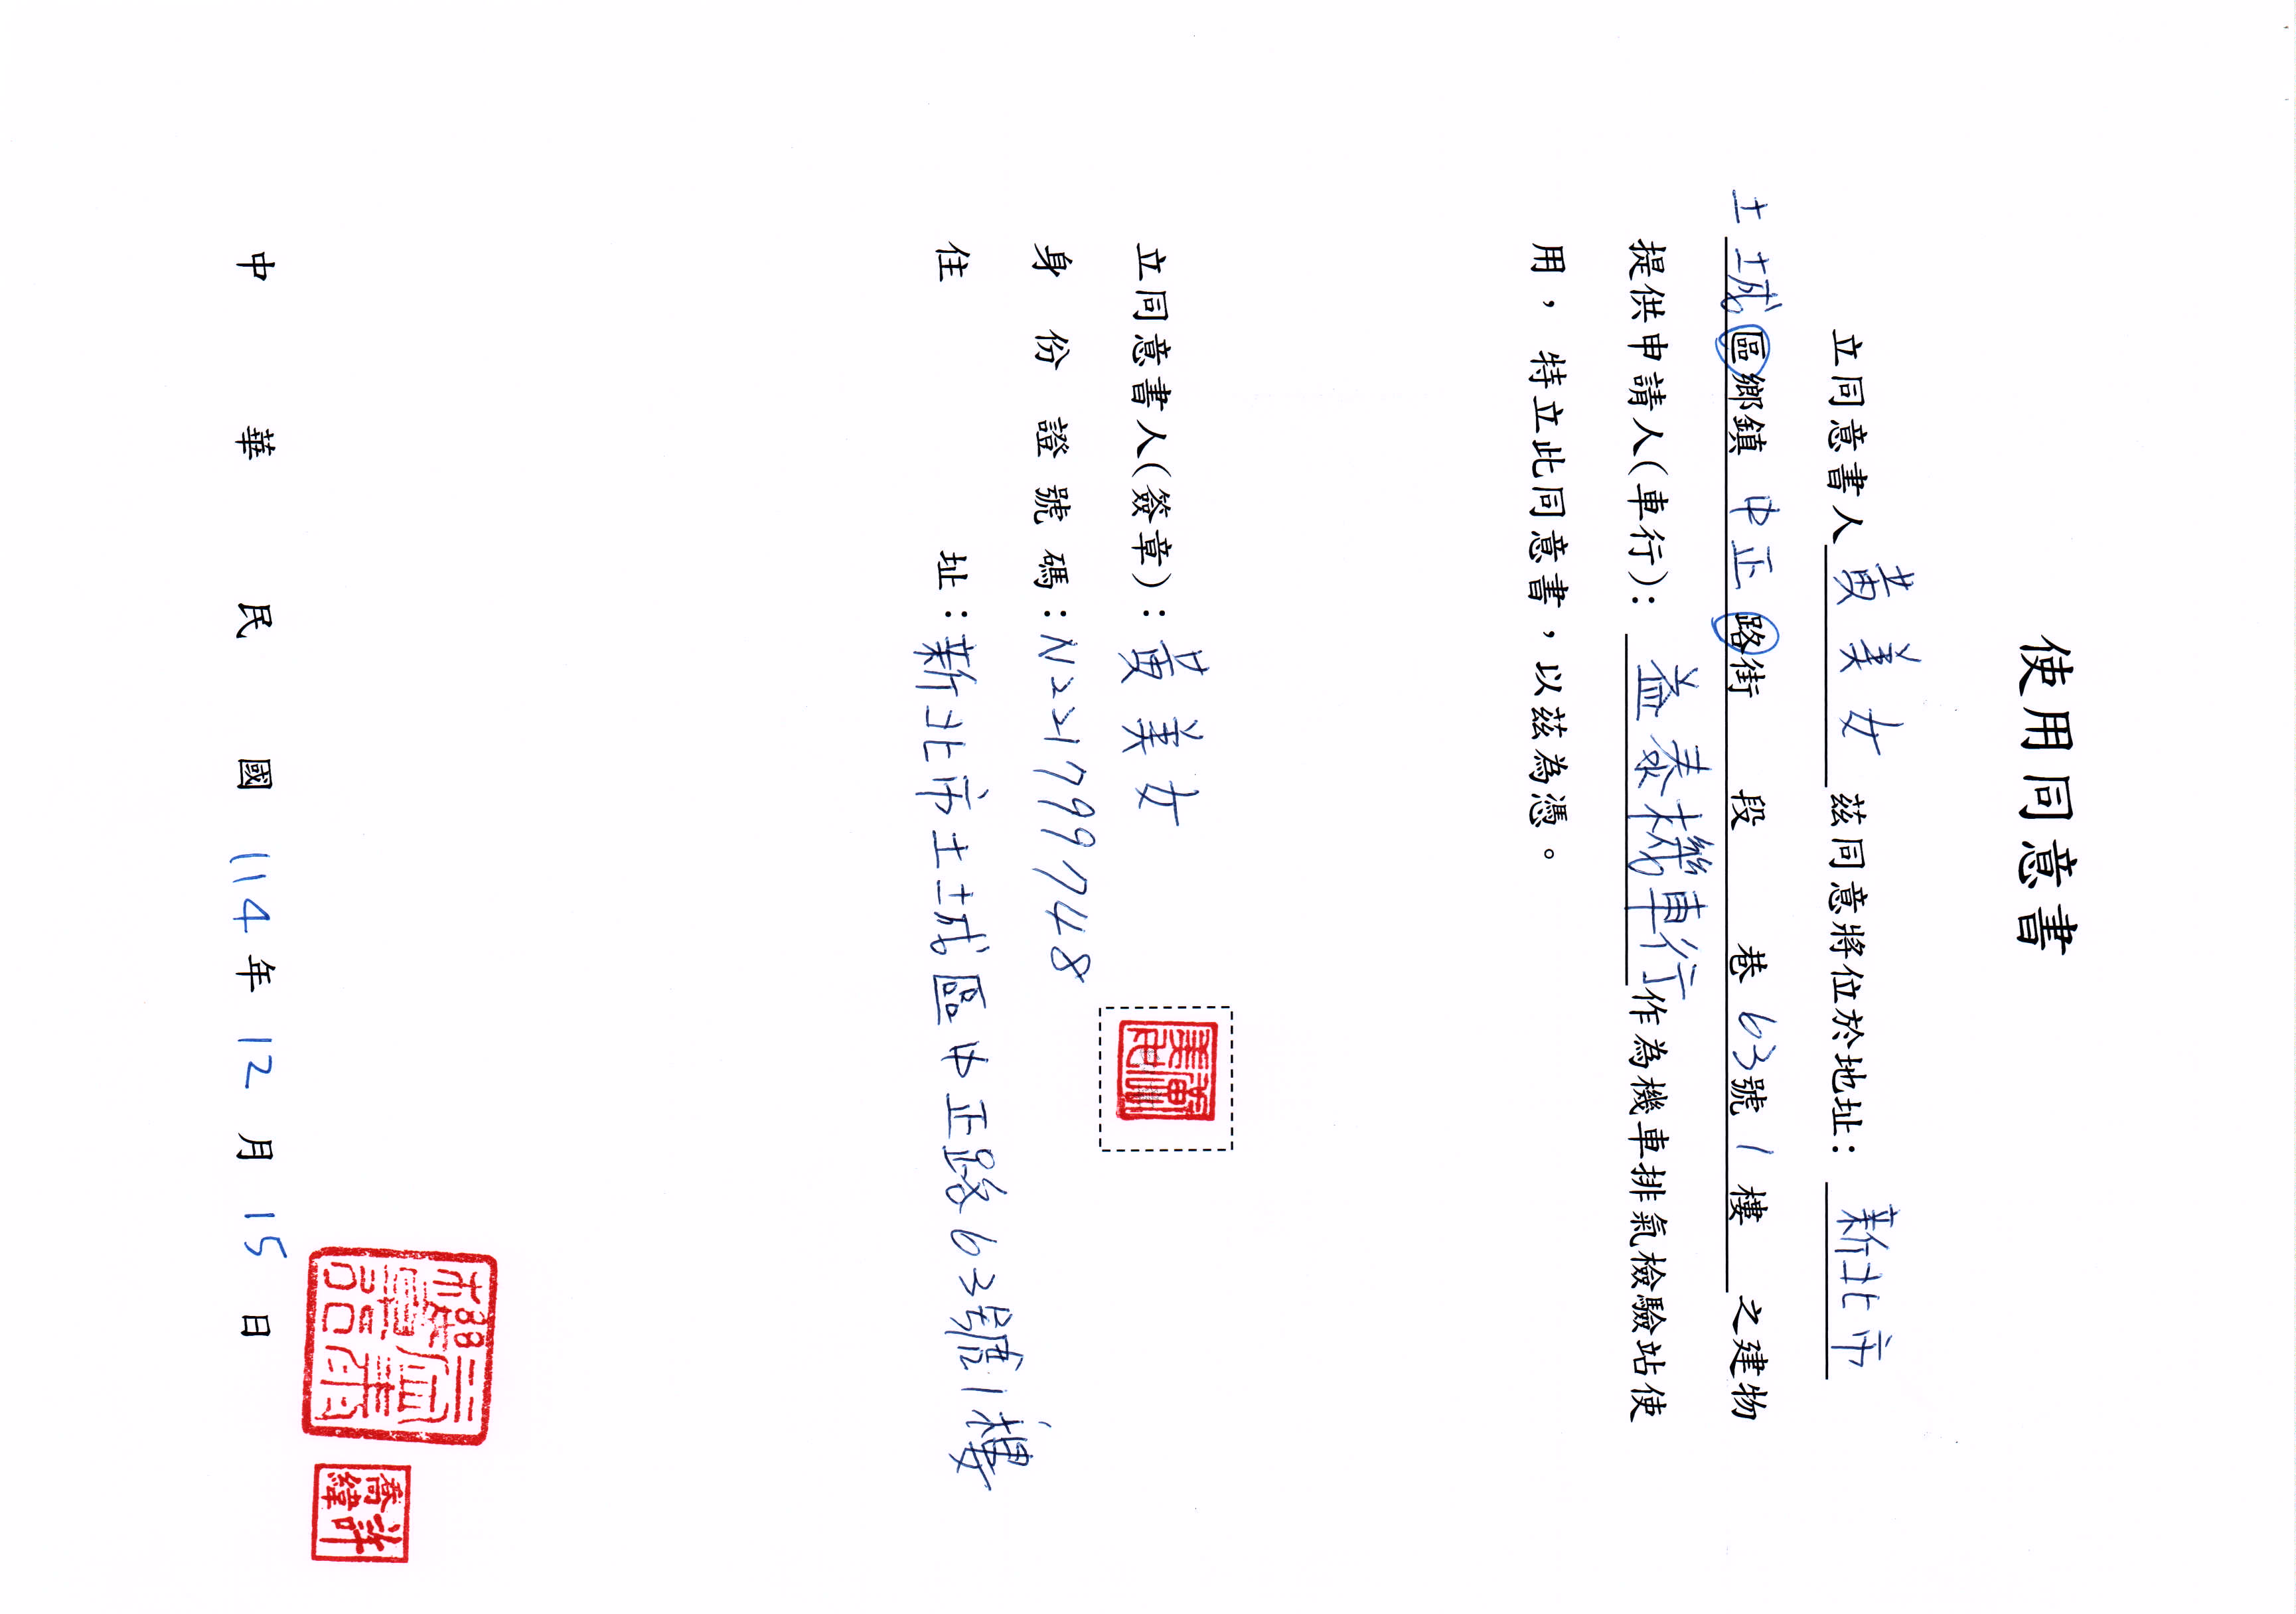 使用同意書
立同意書人 黃美女 茲同意將位於地址: 新北市
土城區鄉鎮 中正路街 段 巷 63號 1樓 之建物
提供申請人(車行): 益泰機車行 作為機車排氣檢驗站使
用, 特立此同意書, 以茲為憑。
立同意書人(簽章): 黃美女
身份證號碼: N221799748
住址: 新北市土城區中正路63號1樓
許喬緯
中華民國 114 年 12 月 15 日